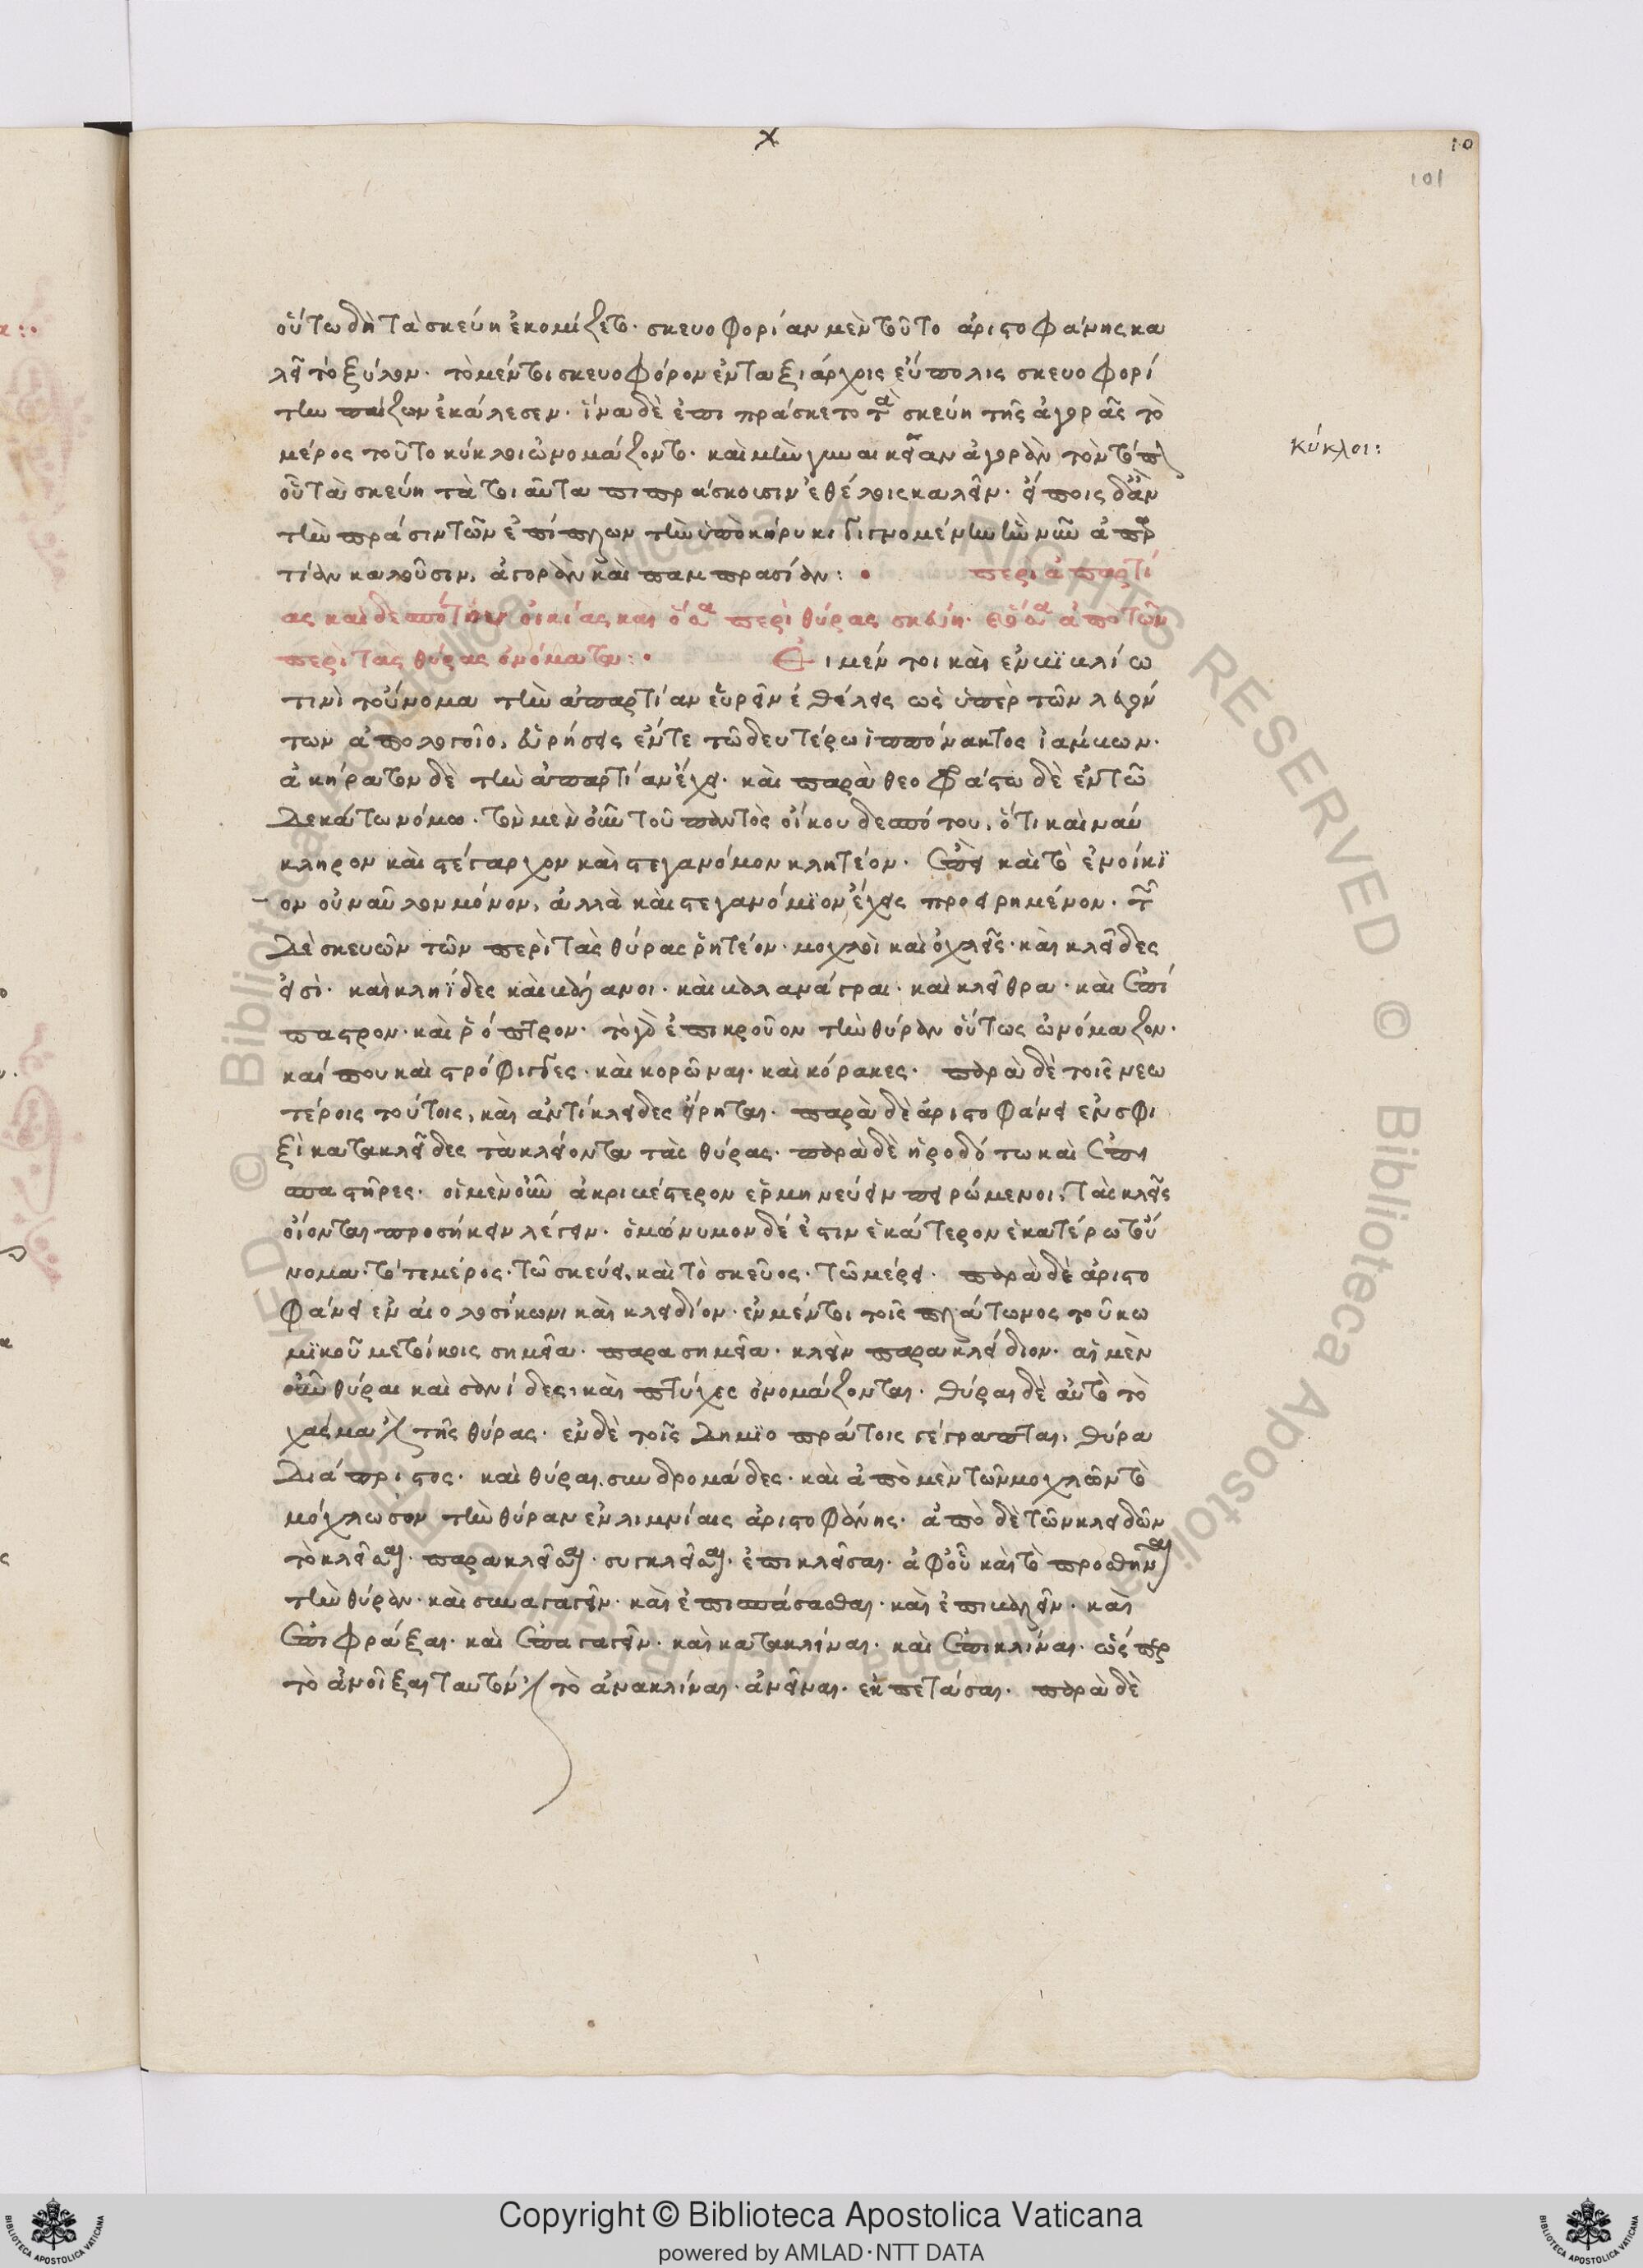 x
10
101
οὕτω δὴ τὰ σκεύη ἐκομίζετο· σκευοφορίαν μὲν τοῦτο ἀριστοφάνης κα
λεῖ τὸ ξύλον· τὸ μέντοι σκευοφόρον ἐν ταξιάρχοις εὔπολις σκευοφορί
την παίζων ἐκάλεσεν· ἵνα δὲ ἐπιπράσκετο τὰ σκεύη τῆς ἀγορᾶς τὸ
μέρος τοῦτο κύκλοι ὠνομάζοντο· καὶ μὴν γυναικείαν ἀγορὰν τὸν τόπον
κύκλοι:
οὗ τὰ σκεύη τὰ τοιαῦτα πιπράσκουσιν ἐθέλοις καλεῖν· εἴποις δ' ἂν
τὴν πρᾶσιν τῶν ἐπίπλων τὴν ὑπὸ κήρυκι γιγνομένην ἣν νῦν ἀπαρ
τίαν καλοῦσιν, ἀγορὰν καὶ παμπρασίαν:· περὶ ἀπαρτί
ας καὶ δεσπότου οἰκίας καὶ ὅσα περὶ θύρας σκεύη· καὶ ὅσα ἀπὸ τῶν
περὶ τὰς θύρας ὀνόματα:· Εἰ μέν τοι καὶ ἐν βιβλίω
τινὶ τοὔνομα τὴν ἀπαρτίαν εὑρεῖν ἐθέλεις ὡς ὑπὲρ τῶν λεγόν
των ἀπολογοῖο, εὑρήσεις ἔν τε τῶ δευτέρω ἱππόνακτος ἰάμβων·
ἀκήρατον δὲ τὴν ἀπαρτίαν ἔχει· καὶ παρὰ θεοφράστω δὲ ἐν τῶ
δεκάτω νόμω· τὸν μὲν οὖν τοῦ παντὸς οἴκου δεσπότου, ὅτι καὶ ναύ
κληρον καὶ στέγαρχον καὶ στεγανόμον κλητέον· ἐπεὶ καὶ τὸ ἐνοίκι
ον οὐ ναῦλον μόνον, ἀλλὰ καὶ στεγανόμιον ἔχεις προειρημένον· τῶν
δὲ σκευῶν τῶν περὶ τὰς θύρας ῥητέον· μοχλοὶ καὶ ὀχλεῖς· καὶ κλεῖδες
εἰσὶ· καὶ κληΐδες καὶ βάλανοι· καὶ βαλανάγραι· καὶ κλεῖθρα· καὶ ἐπί
παστρον· καὶ ῥόπτρον· τὸ γὰρ ἐπικροῦον τὴν θύραν οὕτως ὠνόμαζον·
καί που καὶ στρόφιγγες· καὶ κορῶναι· καὶ κόρακες· παρὰ δὲ τοῖς νεω
τέροις τούτοις, καὶ ἀντίκλειδες εἴρηται· παρὰ δὲ ἀριστοφάνει ἐν σφι
ξὶ κατακλεῖδες τὰ κλείοντα τὰς θύρας· παρὰ δὲ ἡροδότω καὶ ἐπι
σπαστῆρες· οἱ μὲν οὖν ἀκριβέστερον ἑρμηνεύειν πειρώμενοι, τὰς κλεῖς
οἴονται προσήκειν λέγειν· ὁμώνυμον δέ ἐστιν ἑκάτερον ἑκατέρω τοὔ
νομα· τό τε μέρος· τῶ σκεύει, καὶ τὸ σκεῦος· τῶ μέρει· παρὰ δὲ ἀριστο
φάνει ἐν αἰολοσίκωνι καὶ κλειδίον· ἐν μέντοι τοῖς πλάτωνος τοῦ κω
μικοῦ μετοίκοις σημεῖα· παρασημεῖα· κλεῖν παρακλείδιον· αἱ μὲν
οὖν θύραι καὶ σανίδες, καὶ πτύχες ὀνομάζονται· θύραι δὲ αὐτὸ τὸ
χάσμα τῆς θύρας· ἐν δὲ τοῖς δημιοπράτοις γέγραπται, θύρα
διάπριστος· καὶ θύραι συνδρομάδες· καὶ ἀπὸ μὲν τῶν μοχλῶν τὸ
μόχλωσον τὴν θύραν ἐν λιμνίαις ἀριστοφάνης· ἀπὸ δὲ τῶν κλειδῶν
τὸ κλεῖσαι· παρακλεῖσαι· συγκλεῖσαι· ἐπικλεῖσαι· ἀφ' οὗ καὶ τὸ προσθεῖναι
τὴν θύραν· καὶ συναγαγεῖν· καὶ ἐπισπάσασθαι· καὶ ἐπιβαλεῖν· καὶ
ἐπιφράξαι· καὶ ἐπαγαγεῖν· καὶ κατακλῖναι· καὶ ἐπικλῖναι· ὥσπερ
τὸ ἀνοῖξαι ταυτόν τὸ ἀνακλῖναι· ἀνεῖναι· ἐκπετάσαι· παρὰ δὲ
© Biblioteca Apostolica Vaticana ALL RIGHTS RESERVED
Copyright © Biblioteca Apostolica Vaticana
powered by AMLAD·NTT DATA
BIBLIOTECA APOSTOLICA VATICANA
BIBLIOTECA APOSTOLICA VATICANA